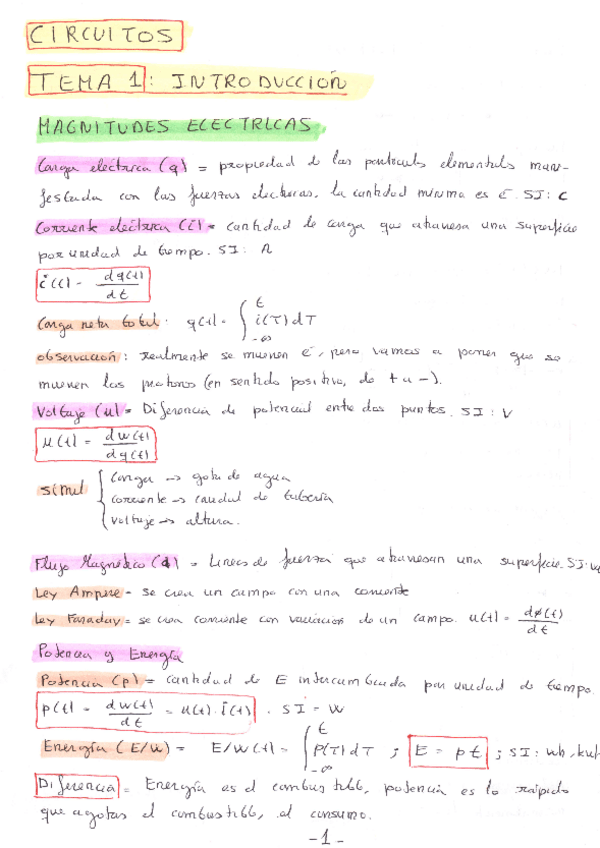 CIRCUITOS
TEMA 1: INTRODUCCIÓN
MAGNITUDES ELECTRICAS
Carga eléctrica (q) = propiedad de las particulas elementales mani-
festada con las fuerzas electricas. la cantidad minima es é. SI: C
Corriente eléctrica (i) = cantidad de carga que atraviesa una superficie
por unidad de tiempo. SI: A
i(t) = dq(t)/dt
Carga neta total: q(t) = ∫_{-∞}^{t} i(τ)dτ
Observación: realmente se mueven é, pero vamos a poner que se
mueven los protones (en sentido positivo, de + a -).
Voltaje (u) = Diferencia de potencial entre dos puntos. SI: V
u(t) = dw(t)/dq(t)
simil { Carga → gota de agua
corriente → caudal de tubería
voltaje → altura.
Flujo Magnético (φ) = Lineas de fuerza que atraviesan una superficie. SI: W
Ley Ampere = se crea un campo con una corriente
Ley Faraday = se crea corriente con variación de un campo. u(t) = dφ(t)/dt
Potencia y Energía
Potencia (p) = cantidad de E intercambiada por unidad de tiempo.
p(t) = dw(t)/dt = u(t)·i(t). SI = W
Energía (E/W) = E/W(t) = ∫_{-∞}^{t} P(τ)dτ ; E = pt ; SI: wh, kwh
Diferencia = Energía es el combustible, potencia es lo rápido
que agotas el combustible, el consumo.
-1-